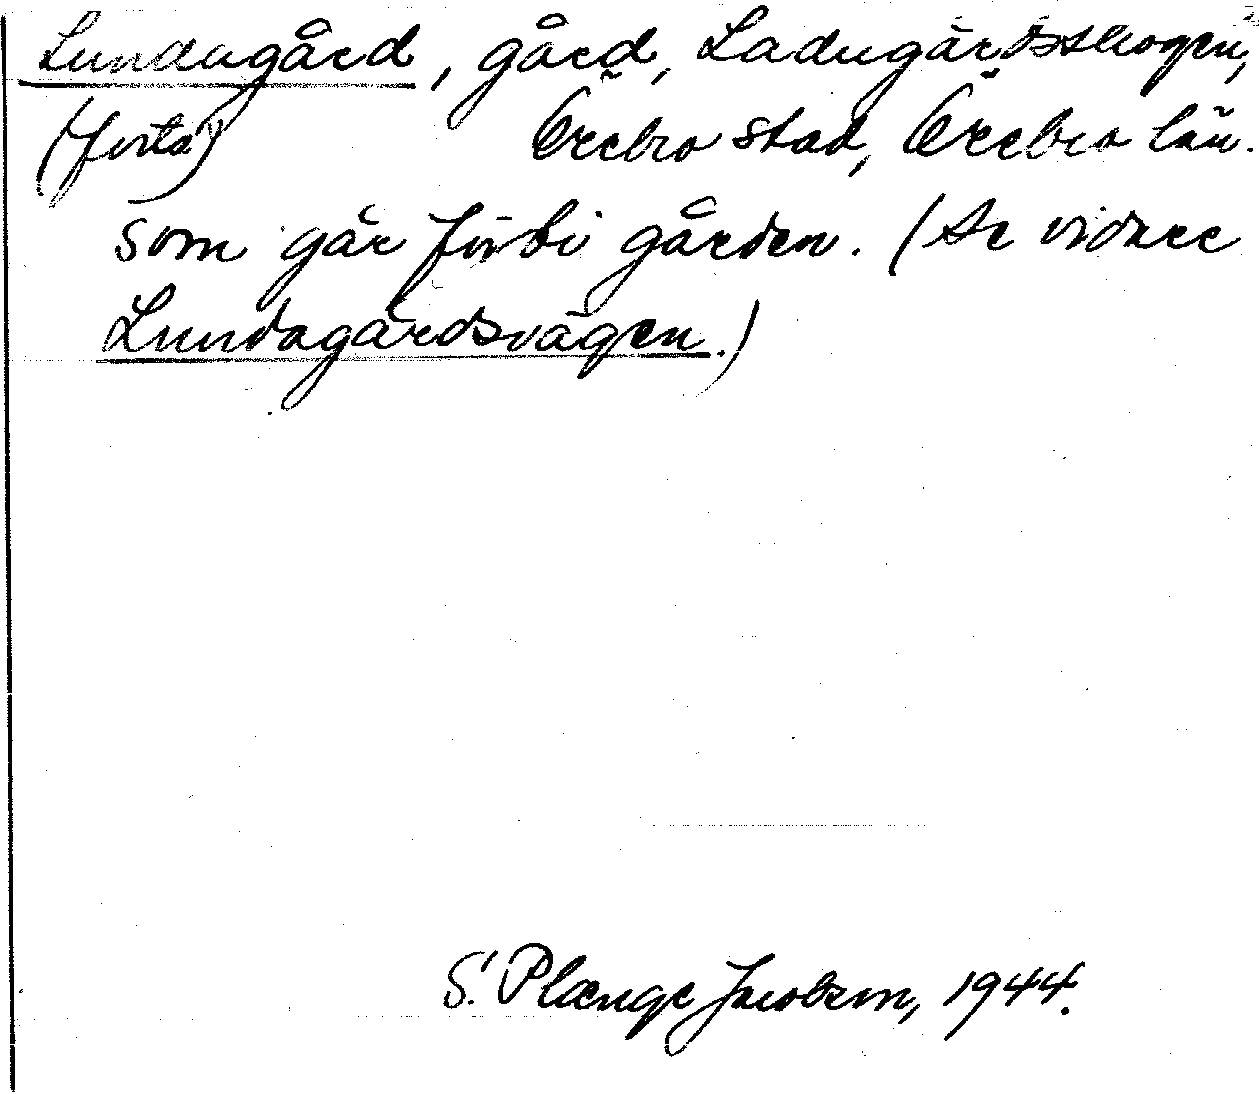 Lundagård, gård, Ladugårdsskogen, 2
(forts.) Örebro stad, Örebro län.
som går förbi gården. (Se vidare
Lundagårdsvägen.)
S. Plænge Jacobson, 1944.